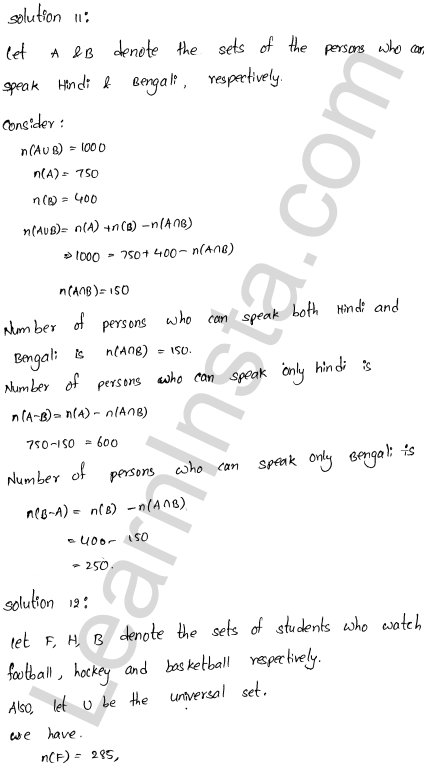 Solution 11:
Let A & B denote the sets of the persons who can
speak Hindi & Bengali, respectively.
Consider:
n(A∪B) = 1000
n(A) = 750
n(B) = 400
n(A∪B) = n(A) + n(B) - n(A∩B)
⇒ 1000 = 750 + 400 - n(A∩B)
n(A∩B) = 150
Number of persons who can speak both Hindi and
Bengali is n(A∩B) = 150.
Number of persons who can speak only hindi is
n(A-B) = n(A) - n(A∩B)
750-150 = 600
Number of persons who can speak only Bengali is
n(B-A) = n(B) - n(A∩B)
= 400 - 150
= 250.
Solution 12:
Let F, H, B denote the sets of students who watch
football, hockey and basketball respectively.
Also, let U be the universal set.
We have.
n(F) = 285,
LearnInsta.com